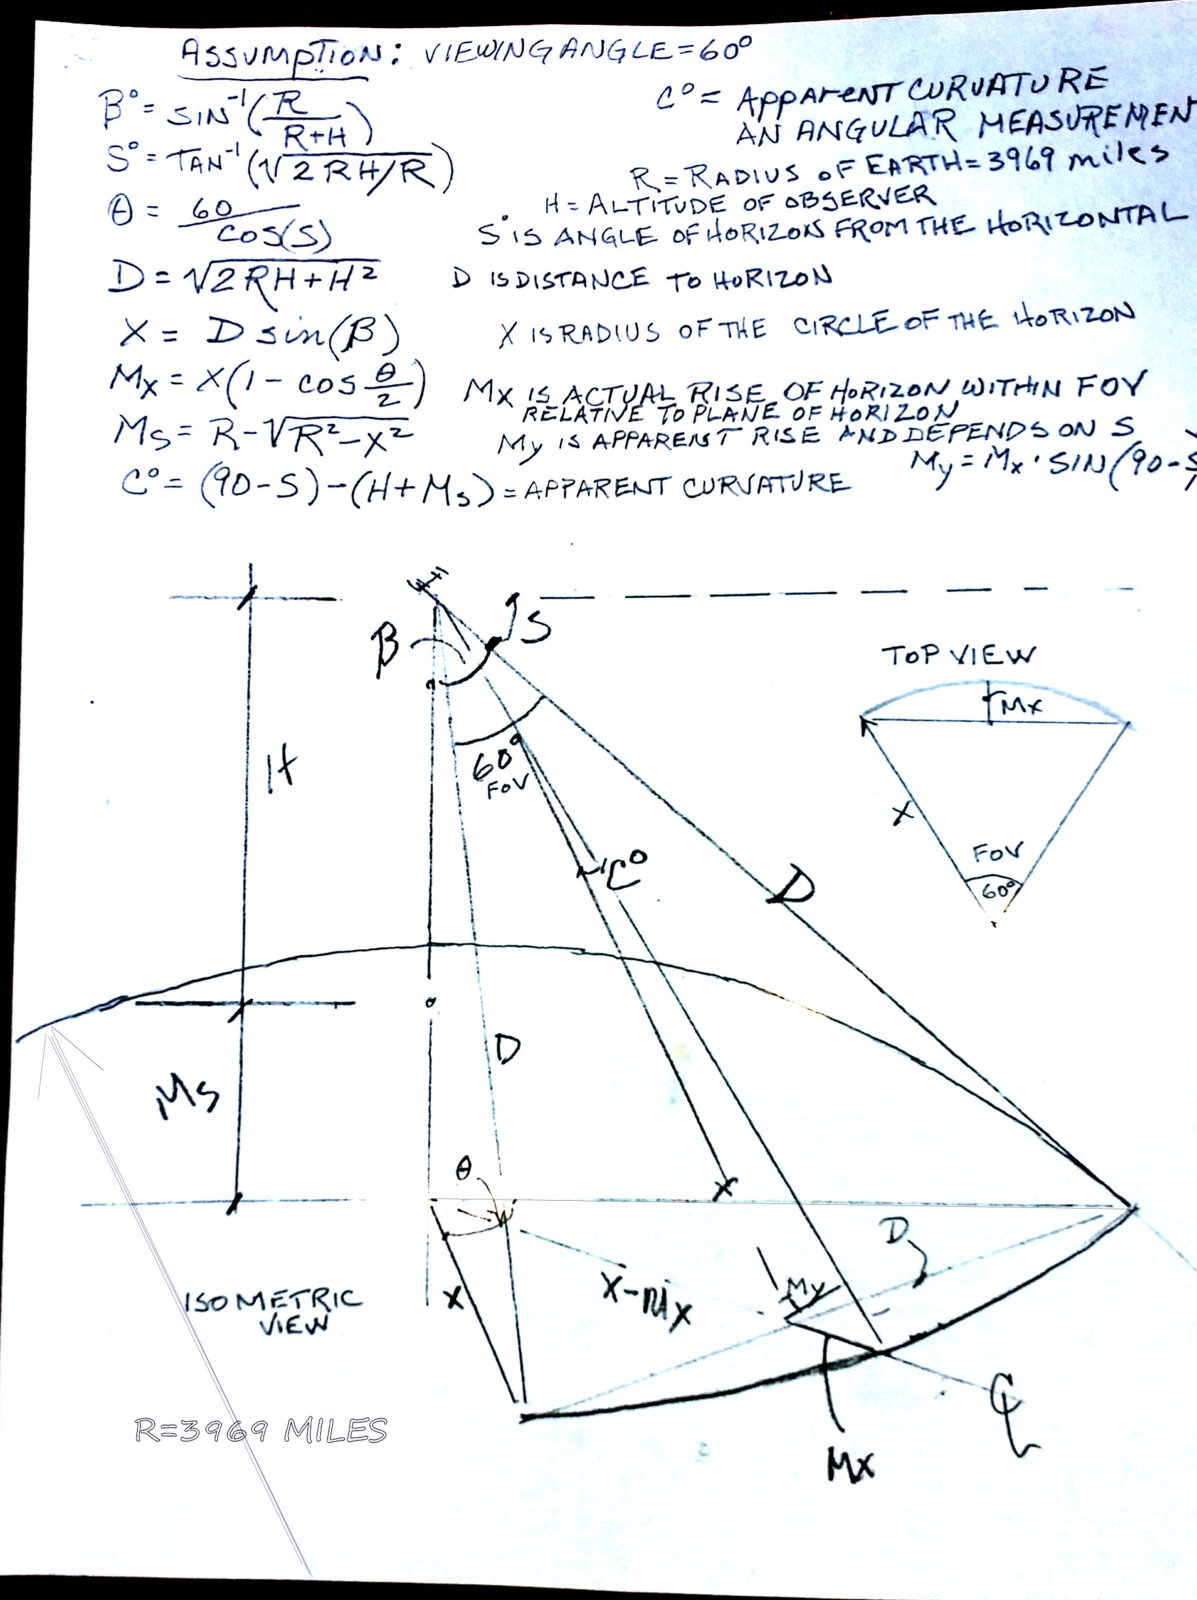 ASSUMPTION: VIEWING ANGLE = 60°
β° = SIN⁻¹(R/R+H)
S° = TAN⁻¹(√2RH/R)
θ = 60/COS(S)
D = √2RH+H²
X = D sin(β)
Mx = X(1 - cos θ/2)
Ms = R-√R²-X²
C° = (90-S)-(H+Ms) = APPARENT CURVATURE
C° = APPARENT CURVATURE
AN ANGULAR MEASUREMENT
R = RADIUS OF EARTH = 3969 miles
H = ALTITUDE OF OBSERVER
S° IS ANGLE OF HORIZON FROM THE HORIZONTAL
D IS DISTANCE TO HORIZON
X IS RADIUS OF THE CIRCLE OF THE HORIZON
Mx IS ACTUAL RISE OF HORIZON WITHIN FOV
RELATIVE TO PLANE OF HORIZON
My IS APPARENT RISE AND DEPENDS ON S
My = Mx · SIN(90-S
β
S
TOP VIEW
Mx
H
60°
FOV
X
FOV
60°
C°
D
D
Ms
θ
X
D
ISOMETRIC
VIEW
X
X-Mx
My
℄
R=3969 MILES
Mx